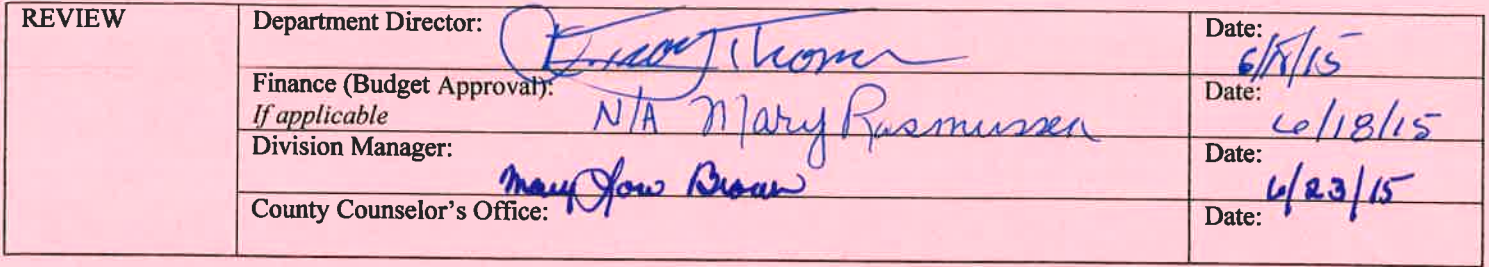 REVIEW
Department Director:
Date:
6/18/15
Finance (Budget Approval):
If applicable
N/A Mary Rasmussen
Date:
6/18/15
Division Manager:
Mary Lou Brown
Date:
6/23/15
County Counselor's Office:
Date: